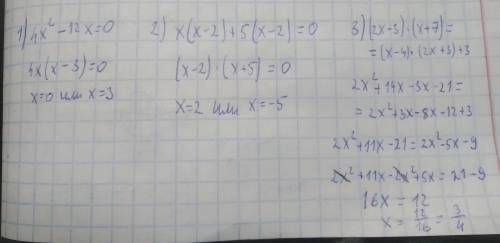 1) 4x²-12x=0
4x(x-3)=0
x=0 или x=3
2) x(x-2)+5(x-2)=0
(x-2)·(x+5)=0
x=2 или x=-5
3) (2x-3)·(x+7)=
=(x-4)·(2x+3)+3
2x²+14x-3x-21=
=2x²+3x-8x-12+3
2x²+11x-21=2x²-5x-9
2x²+11x-2x²+5x=21-9
16x=12
x=12/16=3/4